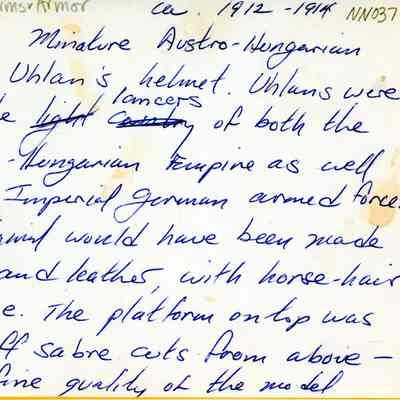 Arms & Armor ca. 1912 - 1914 NN037
Minature Austro-Hungarian
Uhlan's helmet. Uhlans were
lancers
light cavalry of both the
-Hungarian Empire as well
Imperial German armed forces
would have been made
and leather, with horse-hair
e. The platform on top was
ff sabre cuts from above -
fine quality of the model